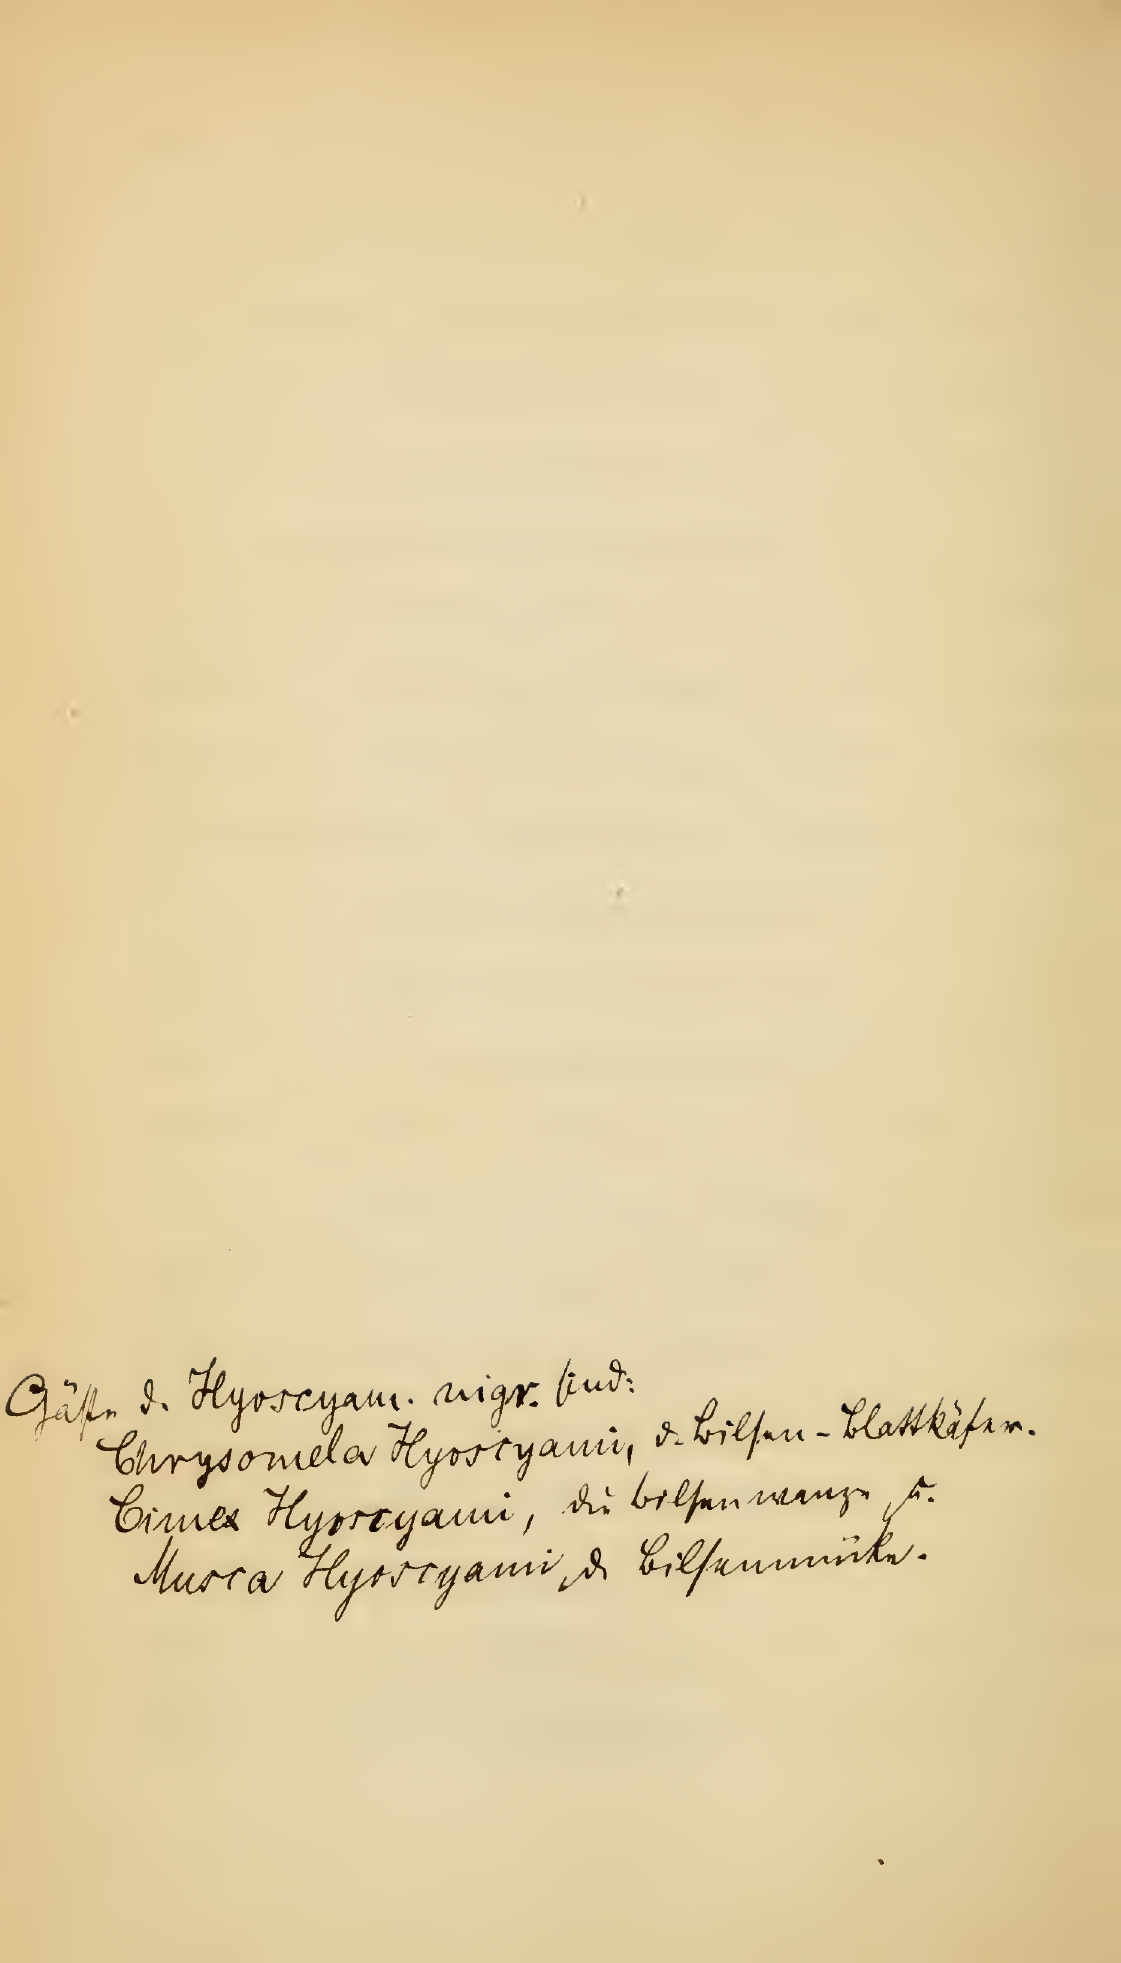 Gäste d. Hyoscyam. nigr. sind:
Chrysomela Hyoscyami, d. Bilsen-Blattkäfer.
Cimex Hyoscyami, die Bilsenwanze u.
Musca Hyoscyami, d. Bilsenmücke.